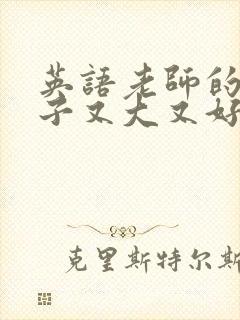 英語老師的
子又大又好
克里斯特尔斯